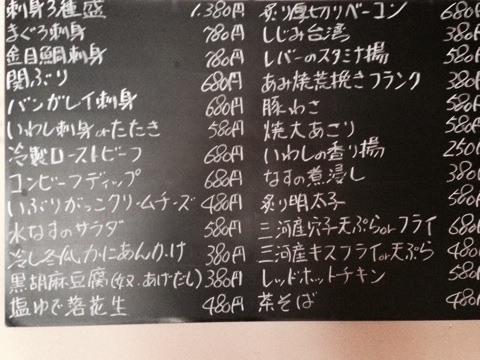 刺身3種盛 1,380円
きぐろ刺身 780円
金目鯛刺身 780円
関ぶり 680円
バンガレイ刺身 680円
いわし刺身orたたき 580円
冷製ローストビーフ 680円
コンビーフディップ 680円
いぶりがっこクリームチーズ 480円
水なすのサラダ 580円
冷し冬瓜かにあんかけ 380円
黒胡麻豆腐(奴、あげだし) 380円
塩ゆで落花生 480円
炙り厚切りベーコン 680円
しじみ台湾 380円
レバーのスタミナ揚 580円
あみ焼荒挽きフランク 380円
豚わさ 580円
焼大あさり 580円
いわしの香り揚 250円
なすの煮浸し 380円
炙り明太子 580円
三河産穴子天ぷらorフライ 680円
三河産キスフライor天ぷら 480円
レッドホットチキン 580円
茶そば 480円